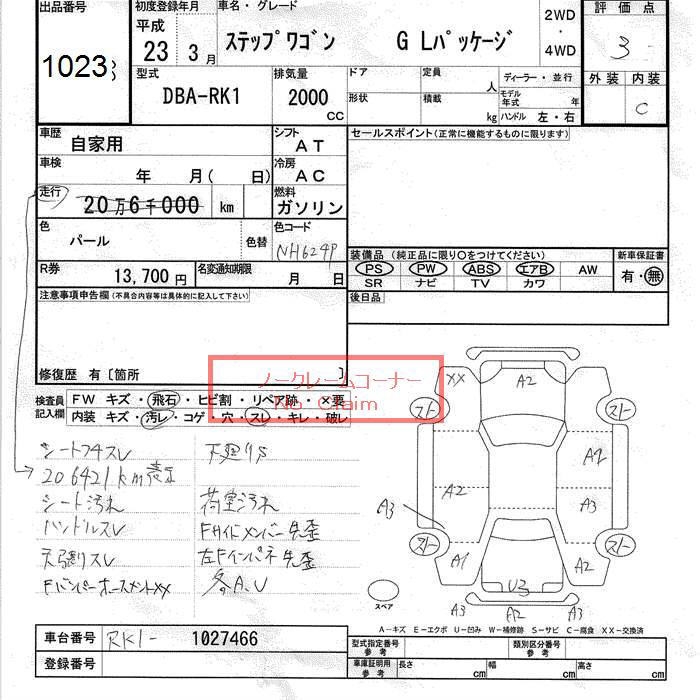 出品番号
1023
初度登録年月
平成
23 3月
車名・グレード
ステップワゴン G Lパッケージ
2WD
・
4WD
評価点
3
外装 内装
C
型式
DBA-RK1
排気量
2000
CC
ドア
形状
定員
人
積載
kg
ディーラー・並行
モデル
年式 年
ハンドル 左・右
車歴
自家用
シフト
AT
車検
年 月( 日)
冷房
AC
走行
20万6千000 km
燃料
ガソリン
色
パール
色替
色コード
NH624P
R券
13,700円
名変通知期限
月 日
セールスポイント(正常に機能するものに限ります)
装備品(純正品に限り〇をつけてください)
PS PW ABS エアB AW
SR ナビ TV カワ
新車保証書
有・無
後日品
注意事項申告欄(不具合内容等は具体的に記入して下さい)
修復歴 有〔箇所 〕
ノークレームコーナー
No Claim
検査員
記入欄
FW キズ・飛石・ヒビ割・リペア跡・×要
内装 キズ・汚レ・コゲ・穴・スレ・キレ・破レ
シートフチスレ
206421km表示
シート汚れ
ハンドルスレ
天張りスレ
下廻りS
荷室汚れ
Fサイドメンバー先歪
左Fインパネ先歪
各A.U
XX
A2
スト
スト
A2
A2
A3
A3
スト
スト
A1
A2
U3
A3
A2
A3
スペア
A-キズ E-エクボ U-凹み W-補修跡 S-サビ C-腐食 XX-交換済
車台番号
RK1- 1027466
登録番号
型式指定番号
参考
類別区分番号
参考
車庫証明用
参考
長さ cm
幅 cm
高さ cm